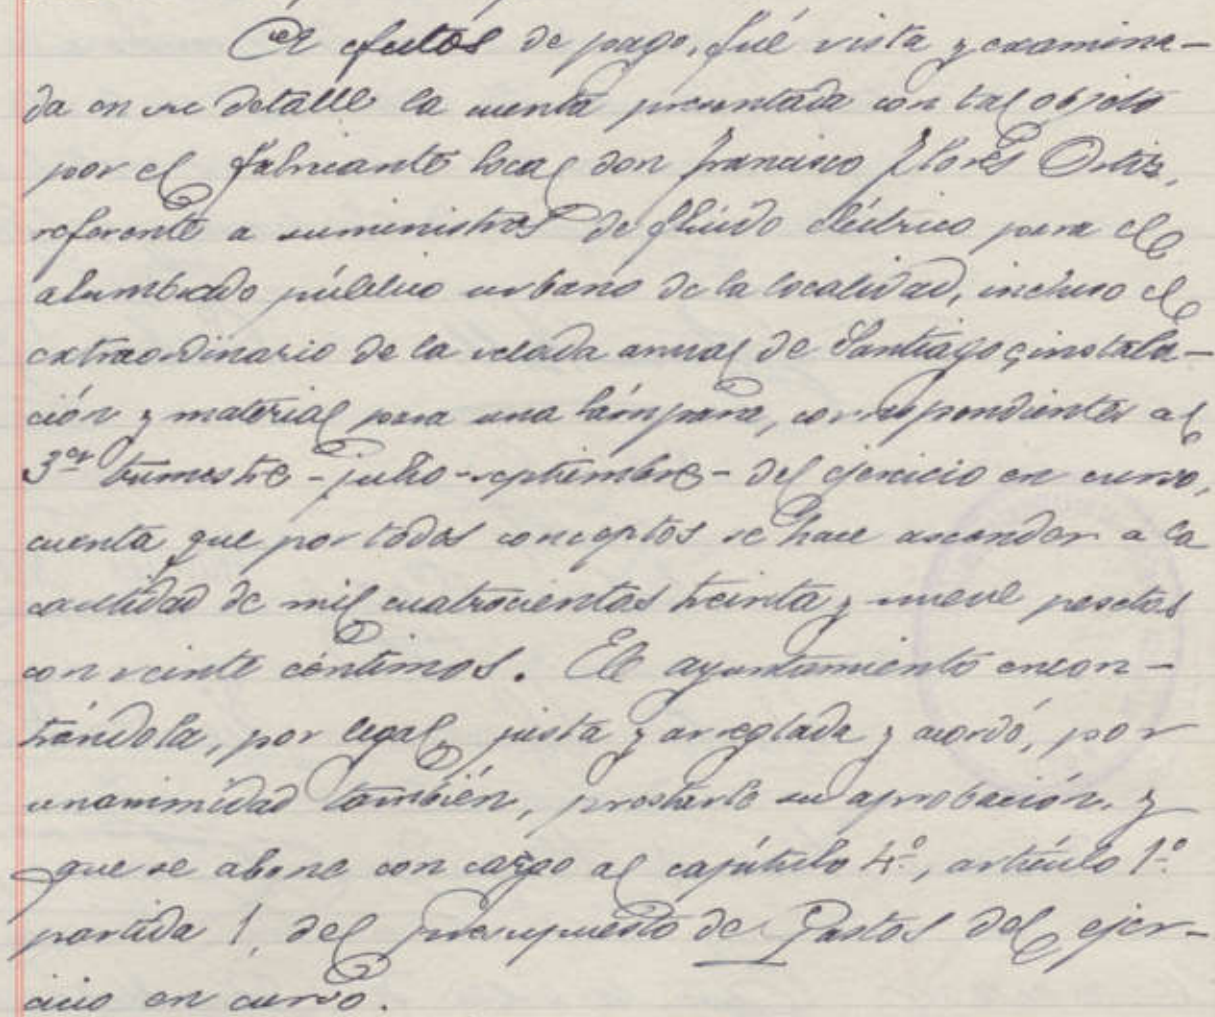 A efectos de pago, fué vista y examina-
da en su detalle la cuenta presentada con tal objeto
por el fabricante local don Francisco Flores Ortiz,
referente a suministros de flúido eléctrico para el
alumbrado público urbano de la localidad, incluso el
extraordinario de la velada anual de Santiago e instala-
ción y material para una lámpara, correspondientes al
3er trimestre - julio-septiembre - del ejercicio en curso,
cuenta que por todos conceptos se hace ascender a la
cantidad de mil cuatrocientas treinta y nueve pesetas
con veinte céntimos. El ayuntamiento encon-
trándola, por legal, justa y arreglada y acordó, por
unanimidad también, prestarle su aprobación, y
que se abone con cargo al capítulo 4º, artículo 1º
partida 1, del Presupuesto de Gastos del ejer-
cicio en curso.